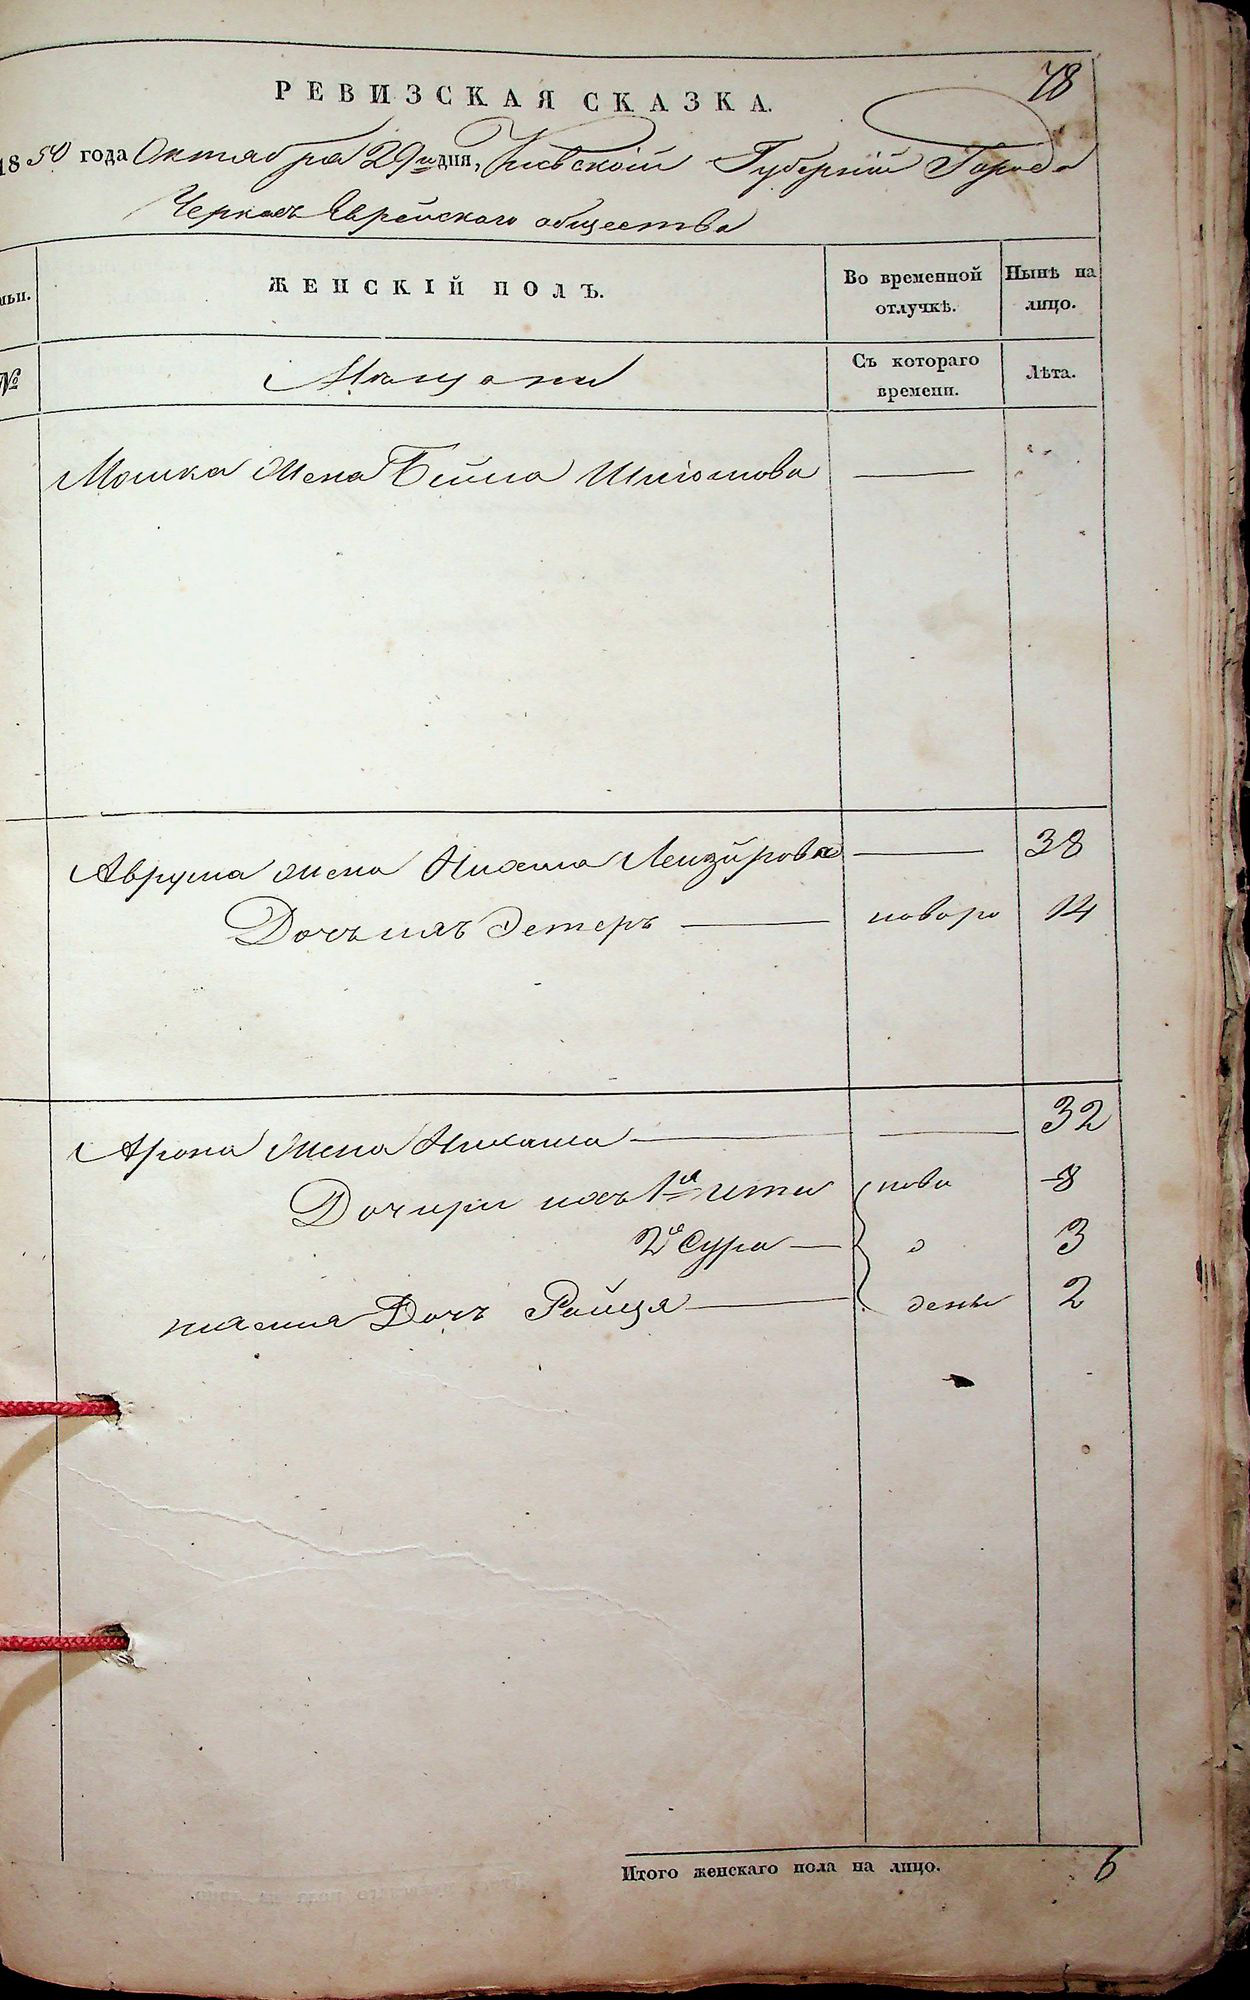 78
РЕВИЗСКАЯ СКАЗКА.
1850 года Октября 29го дня, Киевской Губернии Города
Черкасъ Еврейского общества
ЖЕНСКІЙ ПОЛЪ.
Во временной отлучкѣ.
Нынѣ на лицо.
№
Мѣщане
Съ котораго времени.
Лѣта.
Мошка жена Бейла —
Аврума жена Лейзирова — 38
Дочь ихъ Эстеръ — новоро 14
Арона жена — — 32
Дочери ихъ 1я ново 8
2я Сура — 3
Дочь Райця — дены 2
Итого женскаго пола на лицо. 6